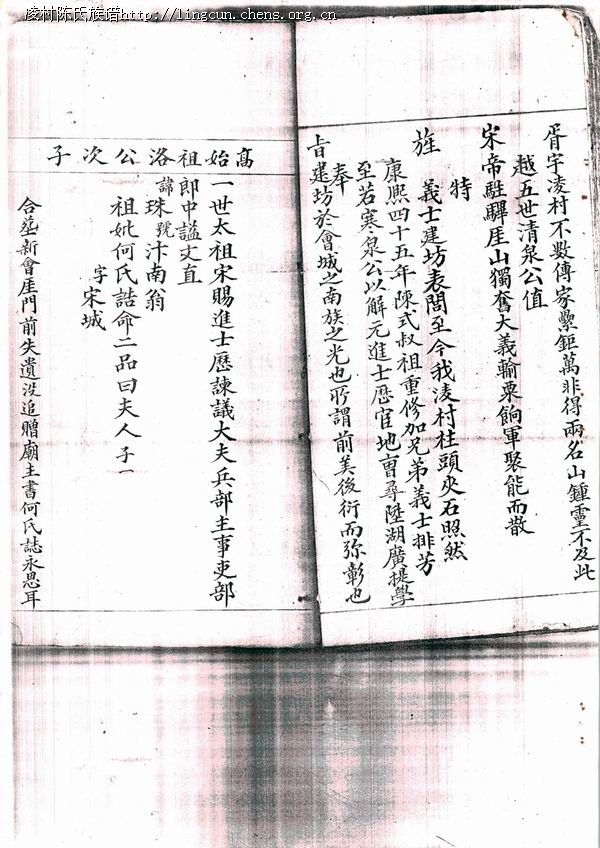 凌村陈氏族谱http://lingcun.chens.org.cn
胥宇凌村不數傳家纍鉅萬非得兩名山鍾靈不及此
越五世清泉公值
宋帝駐驆厓山獨奮大義輸粟餉軍聚能而散
特
旌
義士建坊表閭至今我凌村柱頭夾石照然
康熙四十五年陳式叔祖重修加兄弟義士排芳
至若寒泉公以解元進士歷官地曹尋陞湖廣提學
奉
旨建坊於會城之南族之光也所謂前美後衍而弥彰也
高始祖洛公次子
一世太祖宋賜進士歷諫議大夫兵部主事吏部
郎中謚文直
諱珠號汴南翁
字宋城
祖妣何氏誥命二品曰夫人子一
合塟新會厓門前失遺没追贈廟主書何氏誌永思耳